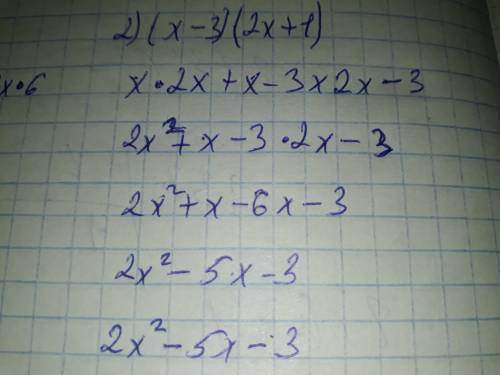 2) (x-3)(2x+1)
x•6
x•2x+x-3x2x-3
2x²+x-3•2x-3
2x²+x-6x-3
2x²-5x-3
2x²-5x-3